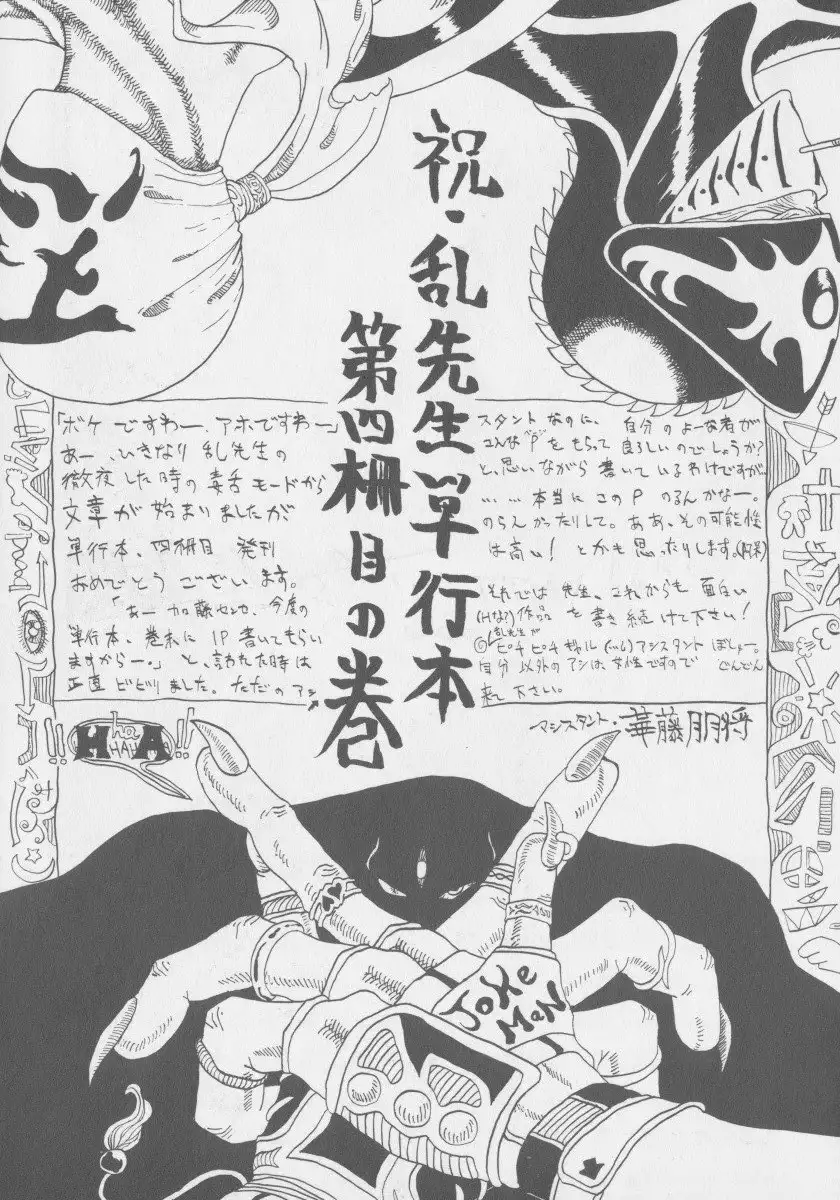 祝・乱先生単行本
第四柵目の巻
「ボケですわー、アホですわー」
あー、いきなり乱先生の
徹夜した時の毒舌モードから
文章が始まりましたが
単行本、四冊目 発刊
おめでとうございます。
「あー加藤センセ、今度の
単行本、巻末に1P書いてもらい
ますからー。」と、言われた時は
正直ビビリました。ただのアシ
スタントなのに、自分のよーな者が
こんな"P"をもらって良ろしいのでしょうか?
と、思いながら書いているわけですが
……本当にこのPのるんかなー。
のらんかったりして。ああ、その可能性
は高い! とかも思ったりします。
それでは先生、これからも面白い
(Hな?)作品を書き続けて下さい!
乱先生が
◎ピチピチギャル アシスタントぼしゅー。
自分以外のアシは、女性ですので どんどん
来て下さい。
マシスタント・華藤朋将
ha
HAHAHA!!
JoKe
MaN